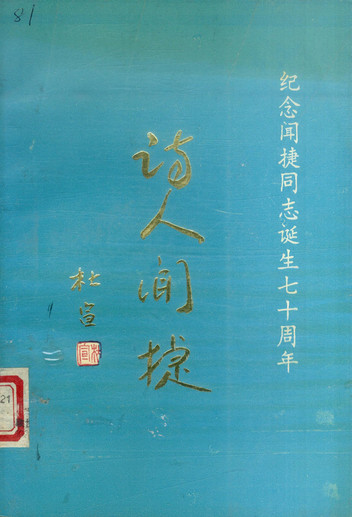 81
纪念闻捷同志诞生七十周年
诗人闻捷
杜宣
杜宣
21